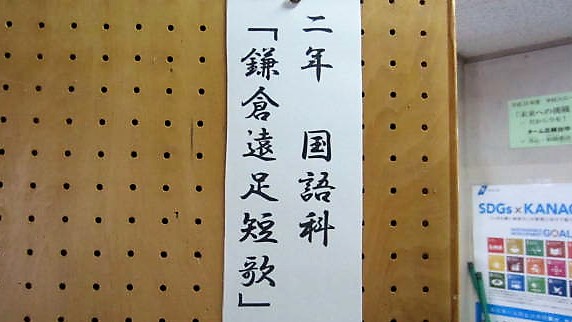 二年 国語科
「鎌倉遠足短歌」
「未来への挑戦
SDGs×KANAG
GOAL